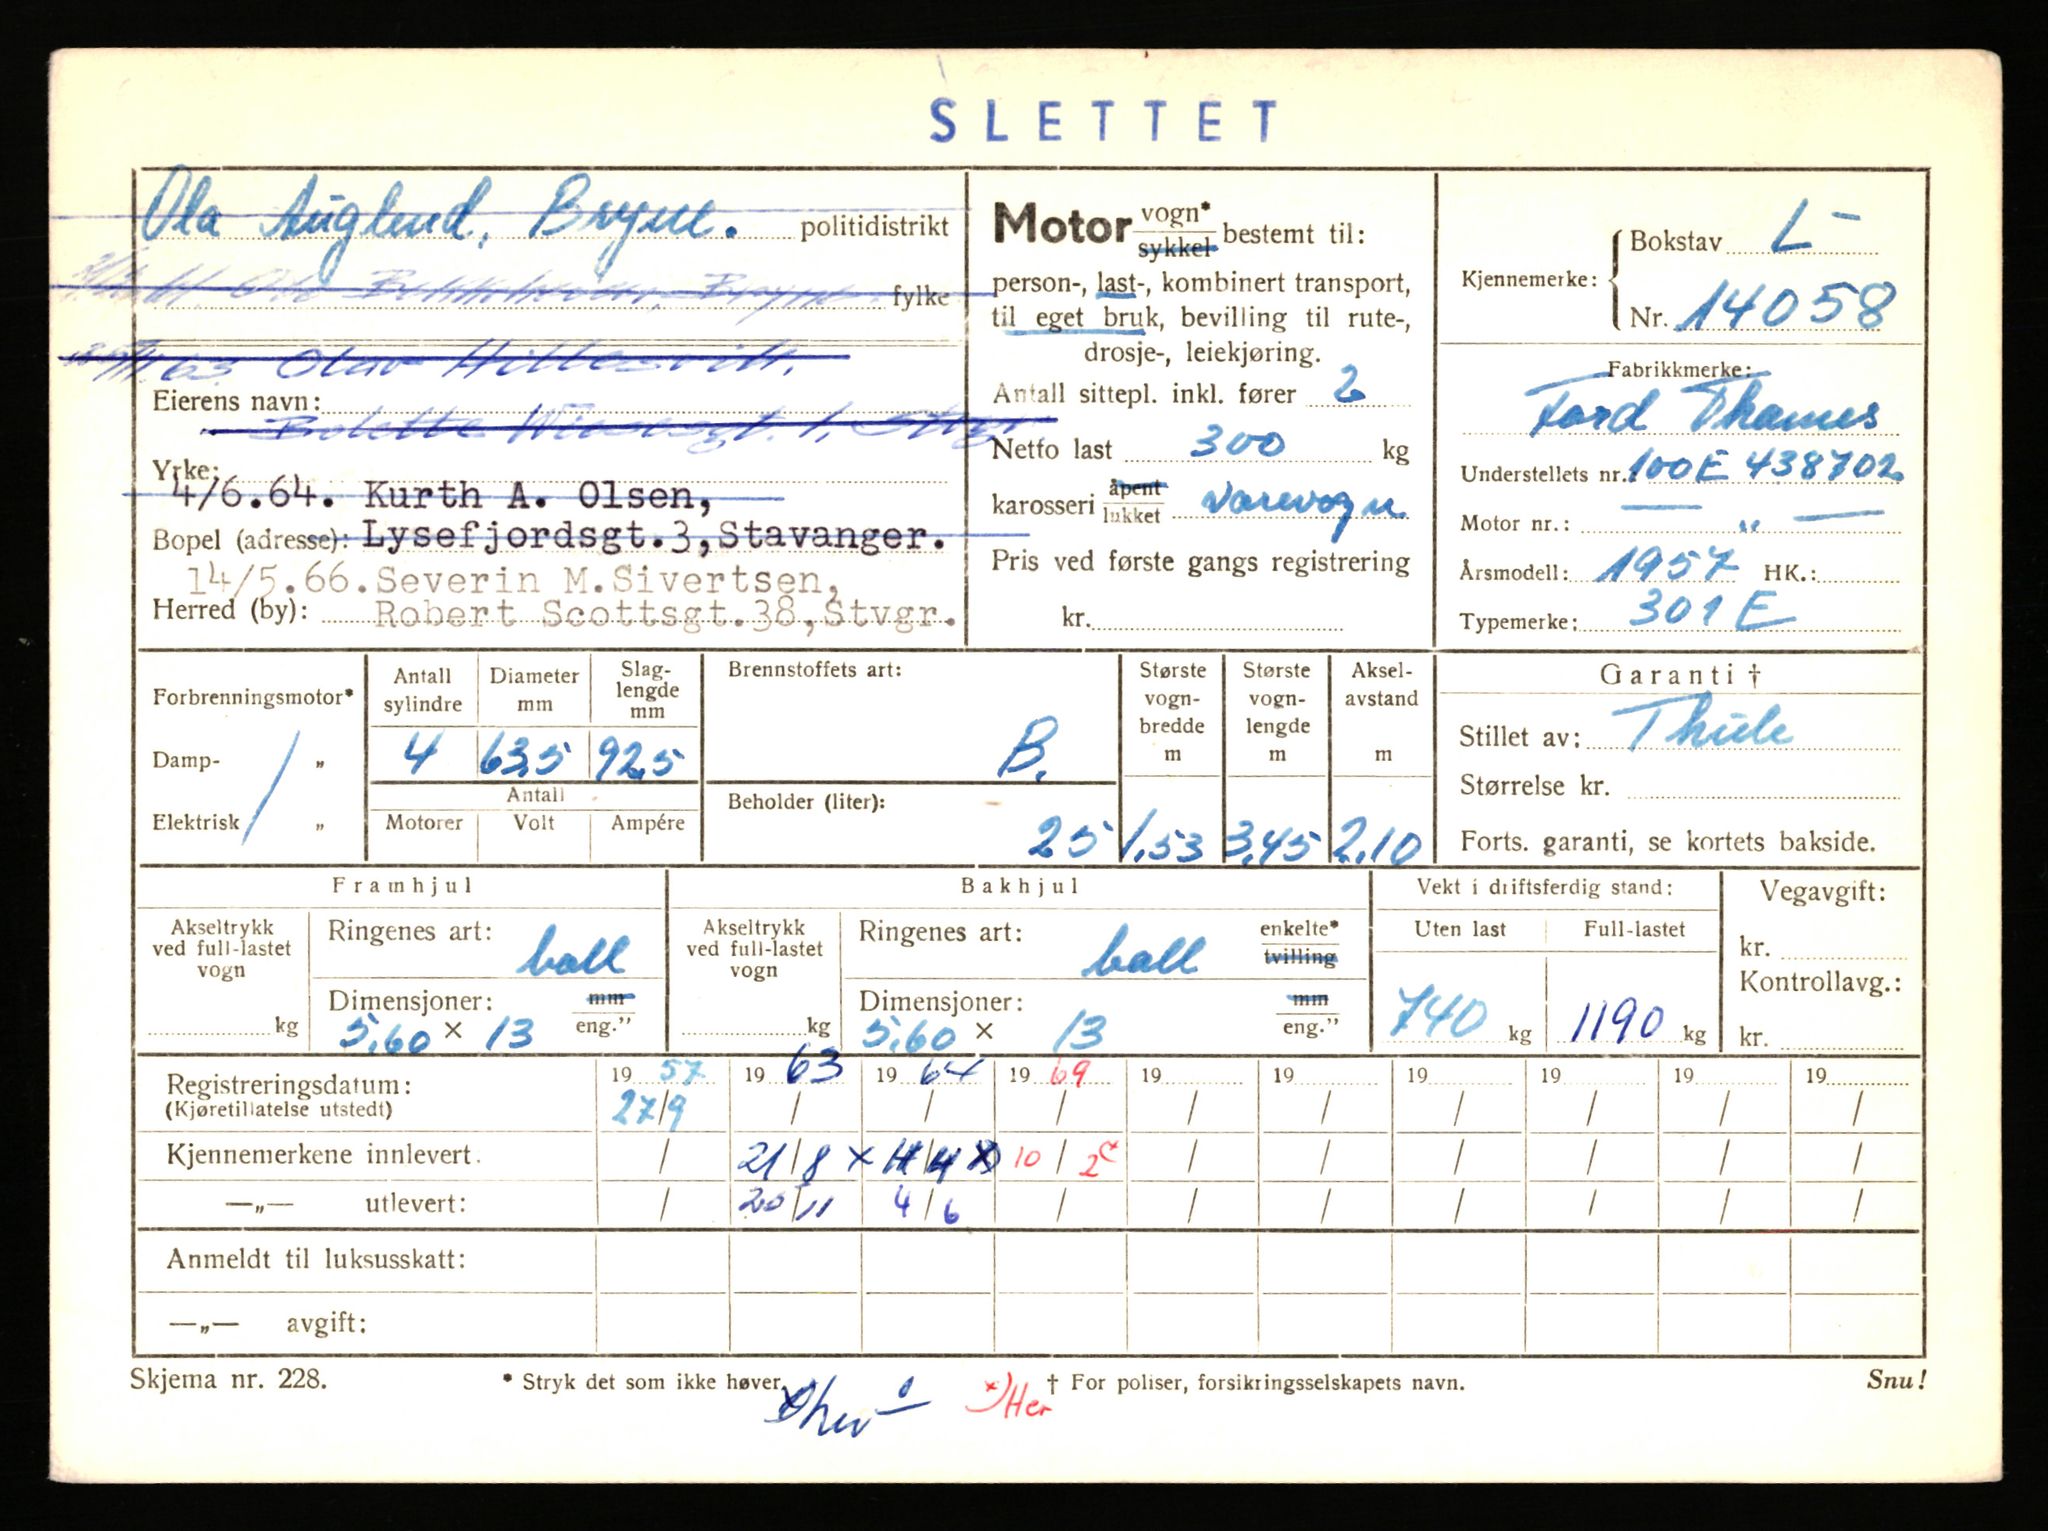 SLETTET
Ola Auglend, Bryne. politidistrikt
Bryne fylke
63. Olav
Eierens navn:
Bolette
Yrke:
4/6.64. Kurth A. Olsen,
Bopel (adresse): Lysefjordsgt.3, Stavanger.
14/5.66. Severin M. Sivertsen,
Herred (by): Robert Scottsgt.38, Stvgr.
Motor vogn* sykkel bestemt til:
person-, last-, kombinert transport,
til eget bruk, bevilling til rute-,
drosje-, leiekjøring.
Antall sittepl. inkl. fører 2
Netto last 300 kg
karosseri åpent lukket varevogn
Pris ved første gangs registrering
kr.
Kjennemerke: { Bokstav L-
Nr. 14058
Fabrikkmerke:
Ford Thames
Understellets nr. 100E 438702
Motor nr.: — „ —
Årsmodell: 1957 HK.:
Typemerke: 301 E
Forbrenningsmotor*
Damp- „
Elektrisk „
Antall sylindre
Diameter mm
Slag-lengde mm
4 63,5 92,5
Antall
Motorer Volt Ampére
Brennstoffets art:
B.
Beholder (liter):
25
Største vogn-bredde m
1,53
Største vogn-lengde m
3,45
Aksel-avstand m
2,10
Garanti †
Stillet av: Thule
Størrelse kr.
Forts. garanti, se kortets bakside.
Framhjul
Akseltrykk ved full-lastet vogn
kg
Ringenes art:
ball
Dimensjoner: mm
5,60 × 13 eng."
Bakhjul
Akseltrykk ved full-lastet vogn
kg
Ringenes art: enkelte*
ball tvilling
Dimensjoner: mm
5,60 × 13 eng."
Vekt i driftsferdig stand:
Uten last Full-lastet
740 kg 1190 kg
Vegavgift:
kr.
Kontrollavg.:
kr.
Registreringsdatum: 19 57 19 63 19 64 19 69 19 19 19 19 19 19
(Kjøretillatelse utstedt) 27/9 / / / / / / / / /
Kjennemerkene innlevert. / 21/8 × 4 × 10/2 × / / / / / /
—„— utlevert: / 20/11 4/6 / / / / / / /
Anmeldt til luksusskatt:
—„— avgift:
Skjema nr. 228. * Stryk det som ikke høver. † For poliser, forsikringsselskapets navn. Snu!
×) Her